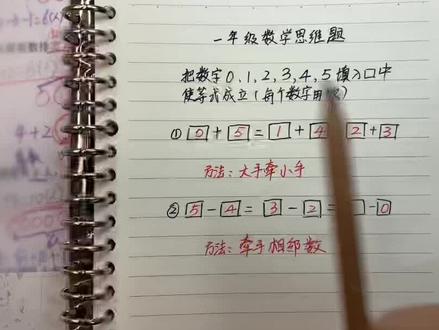 一年级数学思维题
把数字0,1,2,3,4,5填入口中
使等式成立(每个数字用
① 0+5=1+4 2+3
方法:大手牵小手
② 5-4=3-2= -0
方法:牵手相邻数
4+2